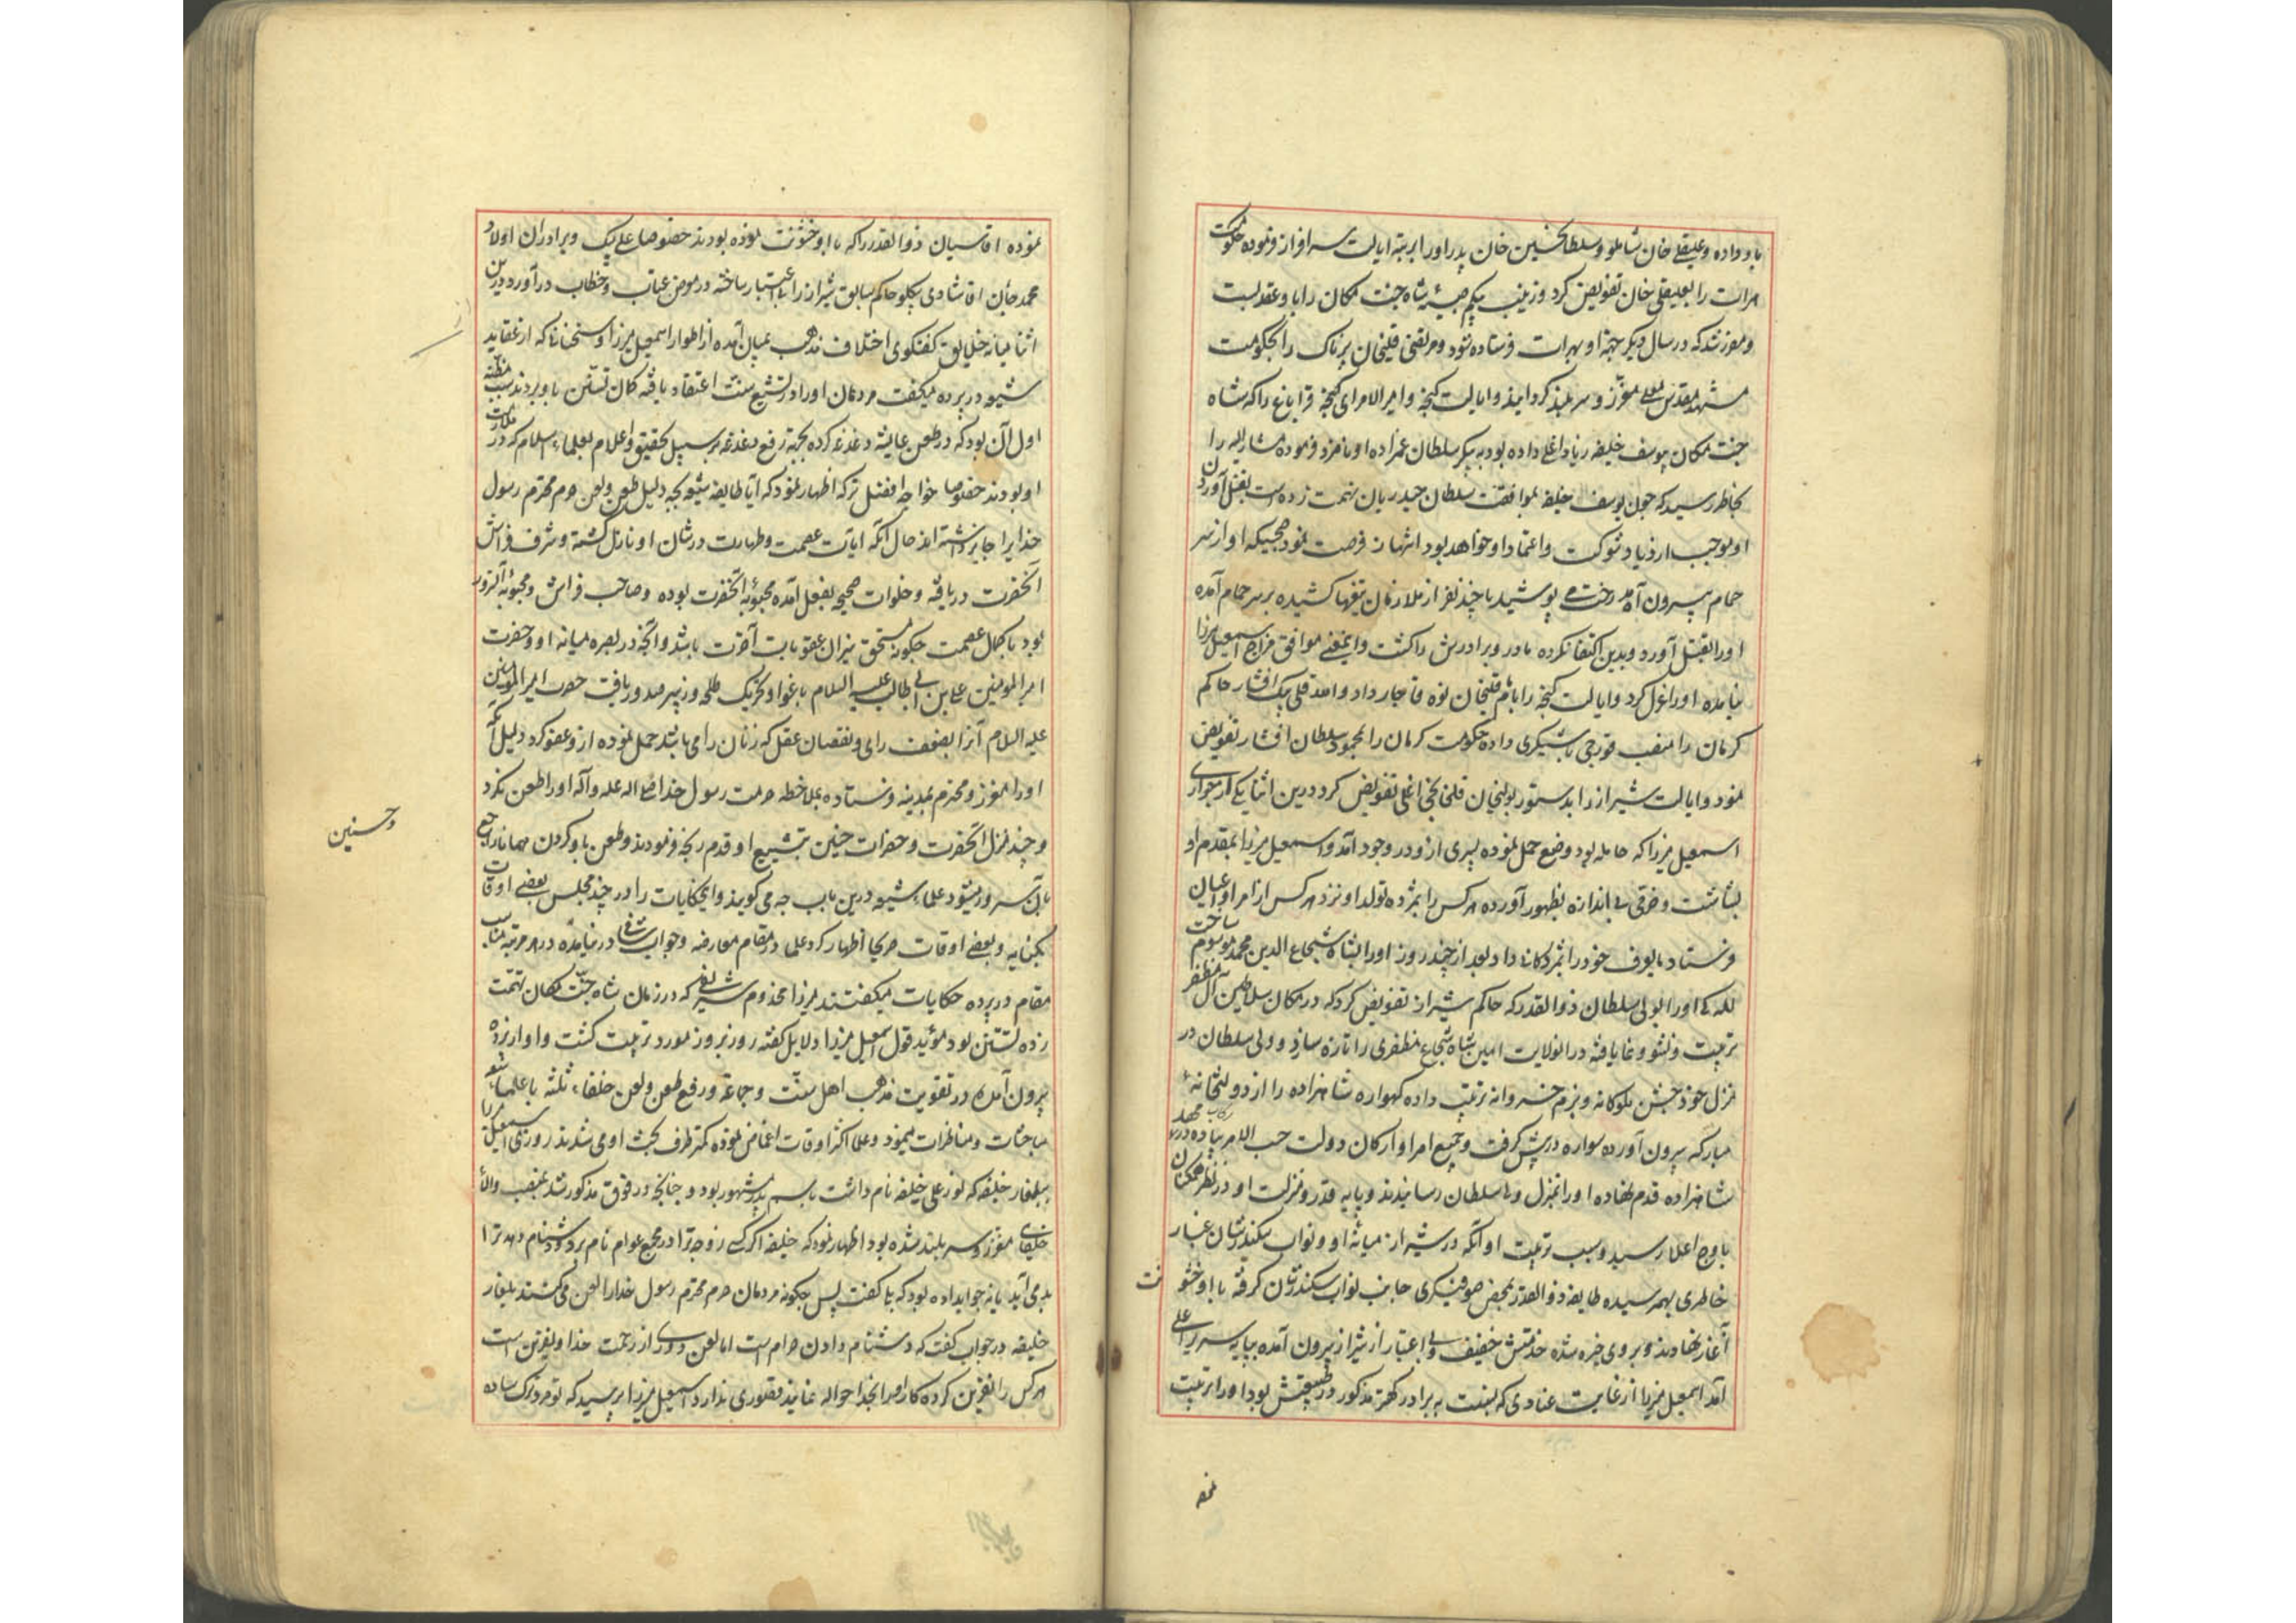 باو داده و علیقلی خان شاملو و سلطان حسین خان پدر اورا برتبهٔ ایالت سرافراز فرموده حکومت
هرات را بعلیقلی خان تفویض کرد و زینب بیکم صبیهٔ شاه جنت مکان را باو عقد بست
و مقرر شد که در سال دیکر بجهة او بهرات فرستاده شود و مرتضی قلیخان پرناک را بحکومت
مشهد مقدس معلی معزز و سربلند کردانید و ایالت کنجه و امیر الامرای کنجه و قراباغ را که شاه
جنت مکان بیوسف خلیفه زیاد اغلی داده بود به پیکر سلطان عمزاده او نامزد فرموده مشارالیه را
بخاطر رسید که چون یوسف خلیفه بموافقت سلطان حیدریان تهمت زده است بقتل آوردن
او موجب ازدیاد شوکت و اعتماد او خواهد بود انتهاز فرصت نمود صبحیکه او از سر
حمام بیرون آمده رخت می پوشید با چند نفر از ملازمان تیغها کشیده بر سر حمام آمده
اورا بقتل آورد و بدین اکتفا نکرده مادر و برادرش را کشت و اینمعنی موافق مزاج اسمعیل میرزا
نیامده اورا عزل کرد و ایالت کنجه را بامام قلیخان نوه قاجار داد و احمد قلی بیک افشار حاکم
کرمان را منصب قورچی باشیکری داده حکومت کرمان را بمحمود سلطان افشار تفویض
نمود و ایالت شیراز را بدستور بولیخان قلخانچی اغلی تفویض کرد درین اثنا یکی از جواری
اسمعیل میرزا که حامله بود وضع حمل نموده پسری ازو در وجود آمد و اسمعیل میرزا بمقدم او
بشاشت و خرمی بی اندازه بظهور آورده هر کس را بمژده تولد او نزد هر کس از امرا و اعیان
فرستاد بایوف خود را بمژدکانی داد بعد از چند روز اورا بشاه شجاع الدین محمد موسوم ساخت
للکی اورا بولی سلطان ذوالقدر که حاکم شیراز تفویض کرد که در مکان سلاطین آل مظفر
تربیت و نشو و نما یافته در انولایت امین شاه شجاع مظفری را تازه سازد و ولی سلطان در
منزل خود جشن ملوکانه و بزم خسروانه ترتیب داده کهواره شاهزاده را از دولتخانهٔ
مبارکه بیرون آورده سواره در پیش کرفت و جمیع امرا و ارکان دولت حسب الامر پیاده در رکاب مهد
شاهزاده قدم نهاده اورا بمنزل ولی سلطان رسانیدند و پایه قدر و منزلت او در نظر همکنان
باوج اعلا رسید و سبب تربیت او آنکه در شیراز میانه او و نواب سکندر شان غبار
خاطری بهمرسیده طایفه ذوالقدر بمحض صوفیکری جانب نواب سکندر شان کرفته با او خشو
نت
آغاز نهادند و بروی خیره شده خدمتش خفیف و بی اعتبار از شیراز بیرون آمده بپایه سریر اعلی
آمد اسمعیل میرزا از غایت عنادی که بنسبت به برادر کهتر مذکور در طبیعتش بود اورا تربیت
نموده اقاسیان ذوالقدر را که با او خشونت نموده بودند خصوصا علی بیک و برادران اولاد
محمد جان اقا شادی بیکلو حاکم سابق شیراز را بی اعتبار ساخته در معرض عتاب و خطاب در آورد درین
اثنا میانه خلایق کفتکوی اختلاف مذهب بمیان آمده از اطوار اسمعیل میرزا و سخنان نا که از عقاید
شیعه در پرده میکفت مردمان اورا در تشیع سست اعتقاد یافته کمان تسنن باو بردند سبب مظنه
اول آن بود که در طعن عایشه دغدغه کرده بجهة رفع دغدغه بر سبیل تحقیق و اعلام بعلماء اسلام که در ملازمت
او بودند خصوصا خواجه افضل ترکه اظهار نمود که آیا طایفه شیعه بچه دلیل طعن و لعن حرم محترم رسول
خدا را جایز داشته اند حال آنکه ایات عصمت و طهارت در شان او نازل کشته و شرف فراش
آنحضرت دریافته و خلوات صحیحه بفعل آمده محبوبهٔ آنحضرت بوده و صاحب فراش و محبوبهٔ آن سرور
بود با کمال عصمت چکونه مستحق نیران عقوبات آخرت باشد و آنچه در بصره میانه او و حضرت
امیر المومنین علی بن ابی طالب علیه السلام باغوا و تحریک طلحه و زبیر صدور یافت حضرت امیر المومنین
علیه السلام آنرا بضعف رای و نقصان عقل که زنان را می باشد حمل نموده ازو عفو کرد دلیل آنکه
اورا معزز و محترم بمدینه فرستاده بملاحظه حرمت رسول خدا صلی الله علیه و آله اورا طعن نکرد
و چند منزل آنحضرت و حضرات حسنین بتشییع او قدم رنجه فرمودند و طعن باو کردن همانا راجع
وحسنین
بآن سرور میشود علماء شیعه درین باب چه می کویند و این حکایات را در چند مجلس بعضی اوقات
بکنایه و بعضی اوقات صریحا اظهار کرد علما در مقام معارضه و جواب شافی در نیامده در هر مرتبه مناسب
مقام در پرده حکایات میکفتند میرزا مخدوم شریفی که در زمان شاه جنت مکان تهمت
زده تسنن بود مؤید قول اسمعیل میرزا دلایل کفته روز بروز مورد تربیت کشت و او از پرده
بیرون آمده در تقویت مذهب اهل سنت و جماعة و رفع طعن و لعن خلفاء ثلثه با علماء شیعه
مباحثات و مناظرات مینمود و علما اکثر اوقات اغماض نموده کمتر طرف بحث او می شدند روزی اسمعیل میرزا
ببلغار خلیفه که نور علی خلیفه نام داشت باسم پدر مشهور بود و چنانچه در فوق مذکور شد بمنصب والا
خلیفای معزز و سربلند شده بود اظهار نمود که خلیفه اکر کسی زوجه ترا در مجمع عوام نام برد و دشنام دهد ترا
بد می آید یا نه جواب داده بود که بلی کفت پس چکونه مردمان حرم محترم رسول خدا را لعن می کنند بلغار
خلیفه در جواب کفت که دشنام دادن حرام است اما لعن دوری از رحمت خدا و نفرین است
هر کس را نفرین کرده کار اورا بخدا حواله نمایند قصوری ندارد اسمعیل میرزا پرسید که تو مرد ترک ساده